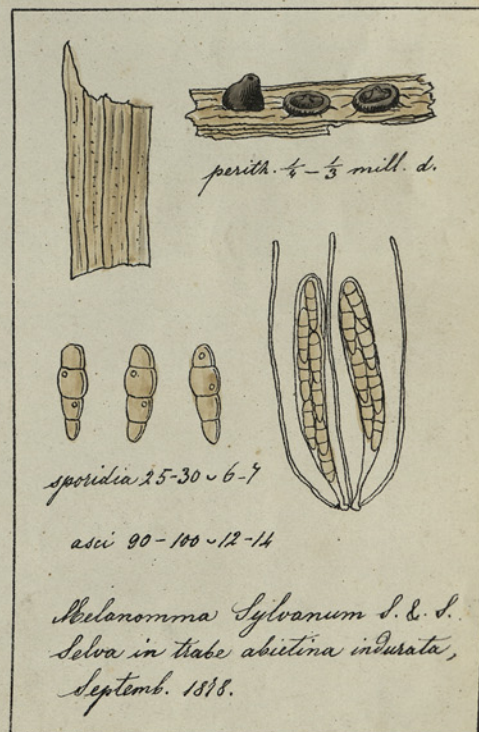 perith. ¼ – ⅓ mill. d.
sporidia 25-30 ⌣ 6-7
asci 90 – 100 ⌣ 12-14
Melanomma Sylvanum S. & S.
Selva in trabe abietina indurata,
Septemb. 1878.